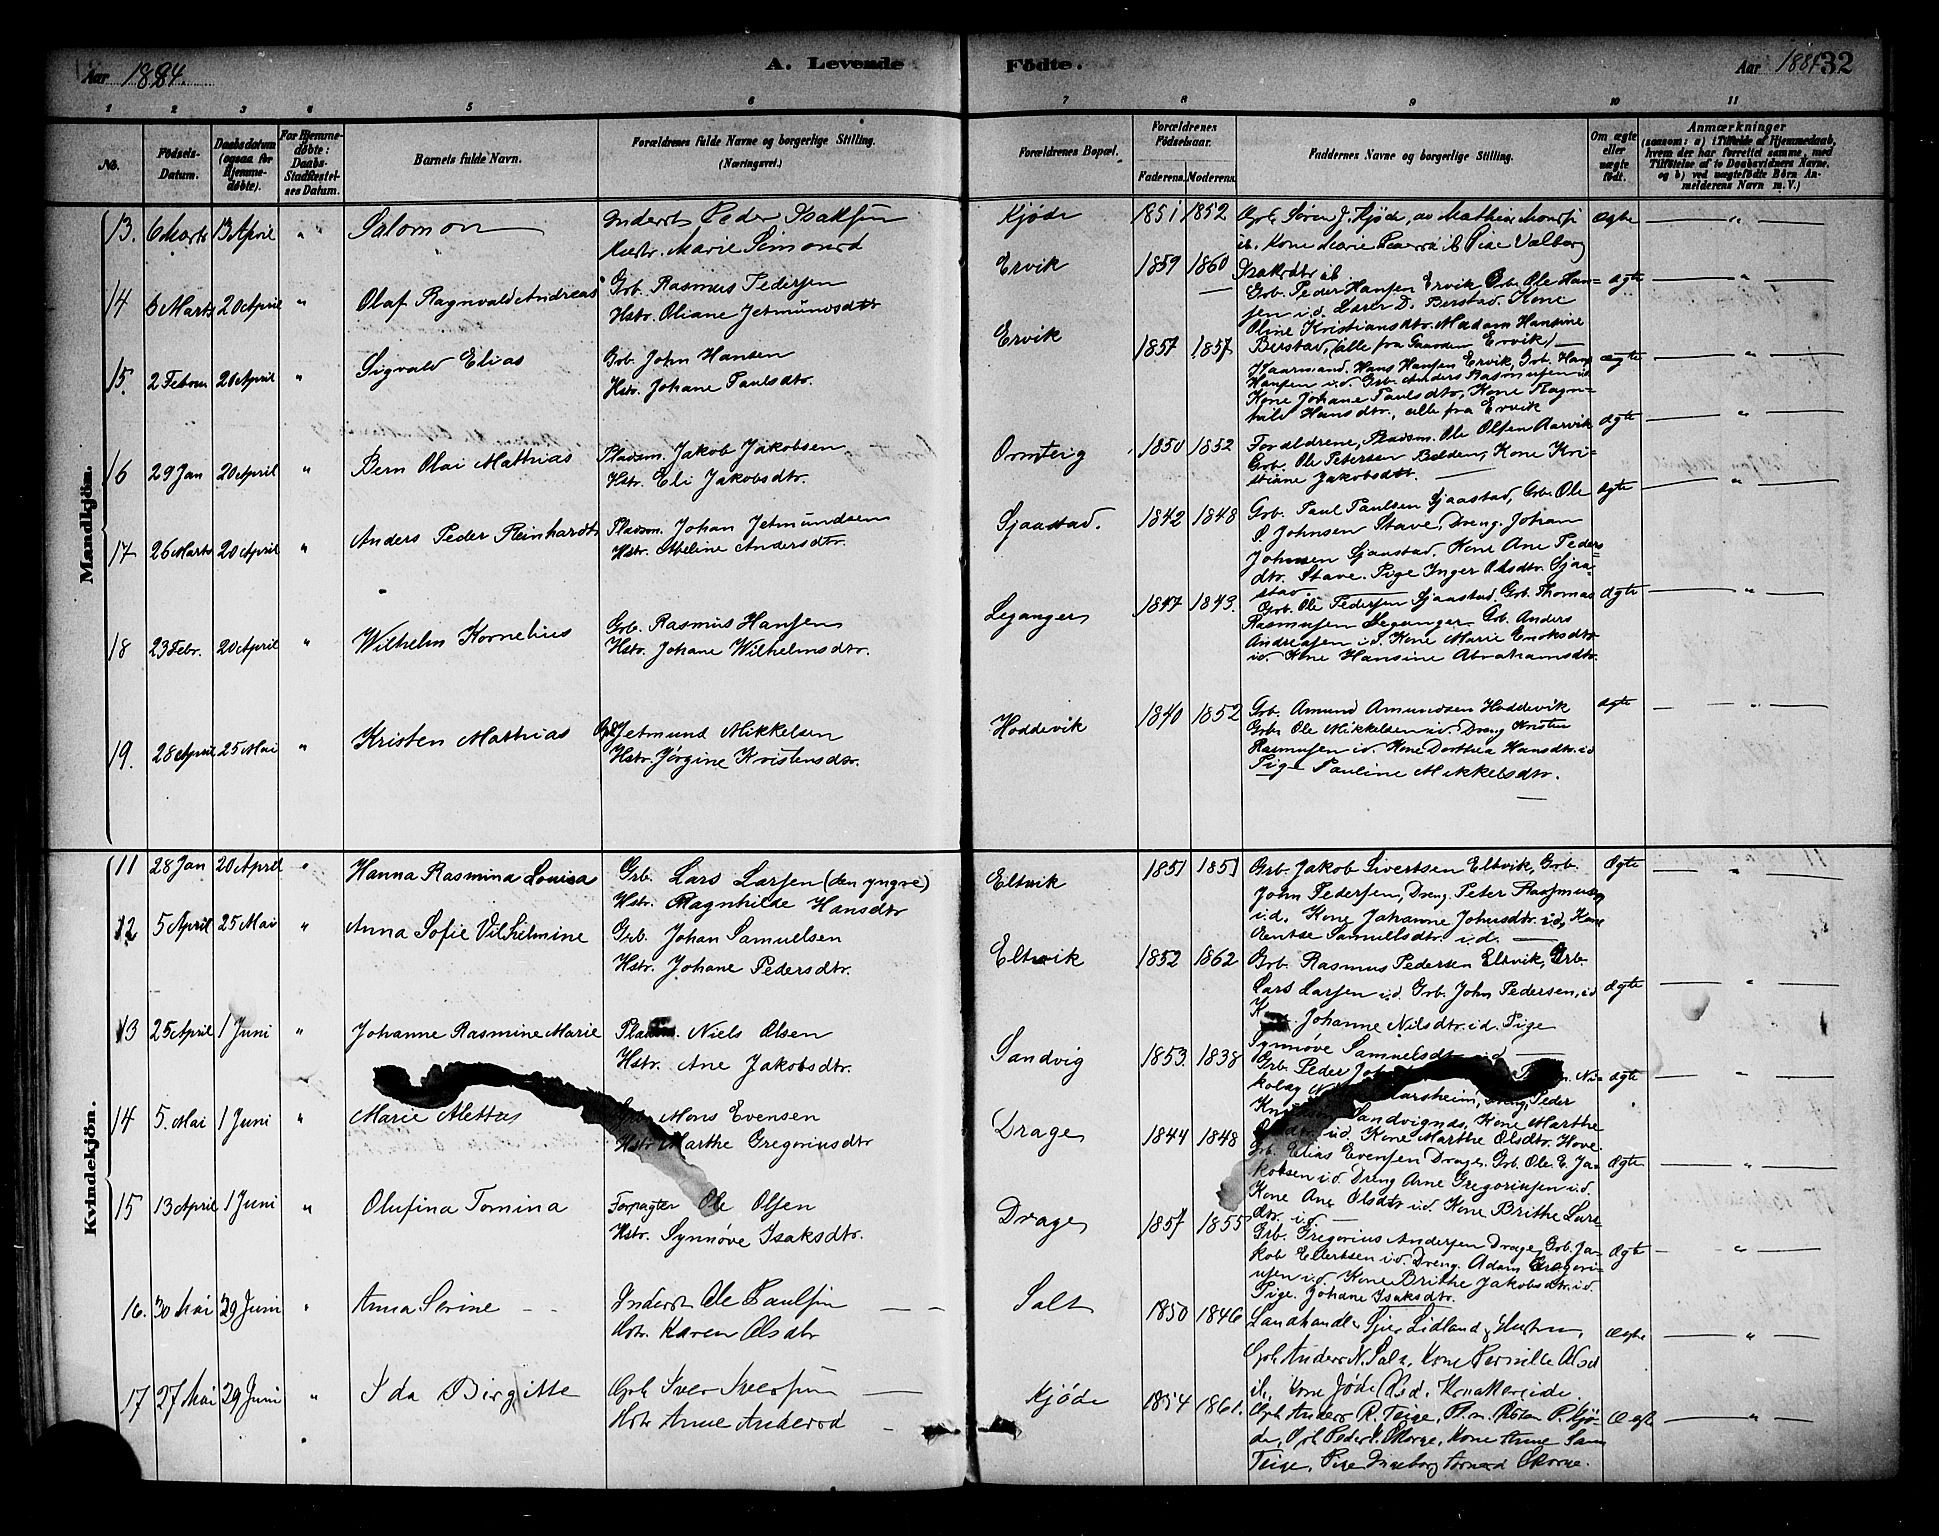 Aar 1884. A. Levende Födte. Aar 1884 32
1 2 3 4 5 6 7 8 9 10 11
No. Födsels-Datum. Daabsdatum (ogsaa for Hjemmedöbte). For Hjemmedöbte: Daabs-Stadfæstelses Datum. Barnets fulde Navn. Forældrenes fulde Navne og borgerlige Stilling. (Næringsvei.) Forældrenes Bopæl. Forældrenes Födselsaar. Faderens. Moderens. Faddernes Navne og borgerlige Stilling. Om ægte eller uægte födt. Anmærkninger (saasom: a) i Tilfælde af Hjemmedaab, hvem der har forrettet samme, med Tilföielse af to Daabsvidners Navne, og b) ved uægtefödte Börn Anmelderens Navn m. V.)
Mandkjön.
13. 6 Marts 13 April " Salomon Inderst Peder Isaksen Kjøde 1851 1852 Søren J. Kjøde, Ægte "
Marie Simonsd
Isaksdtr ib
14 6 Marts 20 April " Olaf Ragnvald Andreas Grb. Rasmus Pedersen Ervik 1859 1860 Grb. Peder Hansen Ervik Grb. Ole Han- ægte "
Hstr. Oliane Jetmundsdtr sen i.d. Lærer D. Berstad, Kone
Oline Kristiansdtr. Madam Hansine
Berstad, (alle fra Gaarden Ervik)
15. 2 Februar 20 April " Sigvald Elias Grb. John Hansen Ervik 1857 1857 Gaarmand. Hans Hansen Ervik, Grb. Hans ægte "
Hstr. Johane Paulsdtr. Hansen i.d. Grb. Anders Rasmussen i.d.
Kone Johane Paulsdtr, Kone Ragn-
hild Hansdtr., alle fra Ervik
16 29 Jan 20 April " Bern Olai Matthias Pladsm. Jakob Jakobsen Ornteig 1850 1852 Forældrene, Pladsm. Ole Olsen Aarvik ægte "
Hstr. Eli Jakobsdtr. Grb. Ole Petersen Belden, Kone Kri-
stiane Jakobsdtr.
17 26 Marts 20 April " Anders Peder Reinhardt Pladsm. Johan Jetmundsen Sjaastad. 1842 1848 Grb. Paul Paulsen Sjaastad, Grb. Ole ægte "
Hstr. Abeline Andersdtr. P Johnsen Stave, Dreng. Johan
Johnsen Sjaastad. Kone Ane Peders-
dtr. Stave. Pige Inger Olsdtr. Sjaa-
stad
18 23 Febr. 20 April " Wilhelm Kornelius Grb. Rasmus Hansen Leganger 1847 1849. Grb. Ole Pedersen Sjaastad. Grb. Thomas ægte "
Hstr. Johane Wilhelmsdtr. Rasmussen Leganger Grb Anders
Andreasen i.d. Kone Marie Enoksdtr
i.d. Kone Hansine Abrahamsdtr.
19. 28 April 25 Mai " Kristen Mathias Grb Jetmund Mikkelsen Hoddevik 1840 1852 Grb. Amund Amundsen Hoddevik ægte "
Hstr. Jørgine Kristensdtr. Grb. Ole Mikkelsen i.d. Dreng Kristen
Rasmussen i.d. Kone Dorthea Hansdtr. i.d
Pige Pauline Mikkelsdtr.
Kvindekjön.
11 28 Jan 20 April " Hanna Rasmina Lovisa Grb. Lars Larsen (den yngre) Eltvik 1851 1851 Grb. Jakob Sivertsen Eltvik, Grb. Ægte "
Hstr. Ragnhilde Hansdtr John Pedersen, Dreng. Peter Rasmusen
i.d. Kone Johanne Johnsdtr. i.d, Kone
Rentse Samuelsdtr. i.d.
12 5 April 25 Mai " Anna Sofie Vilhelmine Grb. Johan Samuelsen Eltvik 1852 1862 Grb. Rasmus Pedersen Eltvik, Grb. ægte "
Hstr. Johane Pedersdtr. Lars Larsen i.d. Grb. John Pedersen, i.d
Johanne Nilsdtr. i.d. Pige
Synnøve Samuelsdtr i.d
13 25 April 1 Juni " Johanne Rasmine Marie Niels Olsen Sandvig 1853. 1838 Grb. Peder Ni- ægte "
Hstr. Ane Jakobsdtr. kolay Dreng. Peder
Sandvignæs, Kone Marthe
i.d. Kone Marthe Olsdtr. Hove
14 5. Mai 1 Juni " Marie Alettas Grb. Mons Evensen Drage 1844 1848 Grb. Elias Evensen Drage, Grb. Ole E. Ja- Ægte "
Hstr Marthe Gregoriusdtr kobsen i.d. Dreng Arne Gregoriusen i.d.
Kone Ane Olsdtr i.d. Kone Brithe Lars-
dtr. i.d
15 13 April 1 Juni " Olufina Tomina Forpagter Ole Olsen Drage 1857 1855 Grb. Gregorius Andersen Drage, Grb. Ja- Ægte "
Hstr. Synnøve Isaksdtr. kob Ellertsen i.d. Dreng. Adam Gregori-
usen i.d. Kone Brithe Jakobsdtr. i.d.
Pige. Johane Isaksdtr.
16. 30 Mai 29 Juni " Anna Serine Inderst Ole Paulsen Salt 1850 1846 Landhandler Lidland, Hustru, Ægte "
Hstr. Karen Olsdtr Anders N. Salt, Kone Pernille
17 27 Mai 29 Juni " Ida Birgitte Kjøde 1854 1861. Anders R. Teige, Ægte "
Hstr Anne Kone Anne
Teige, Pige Ingeborg Skorge.